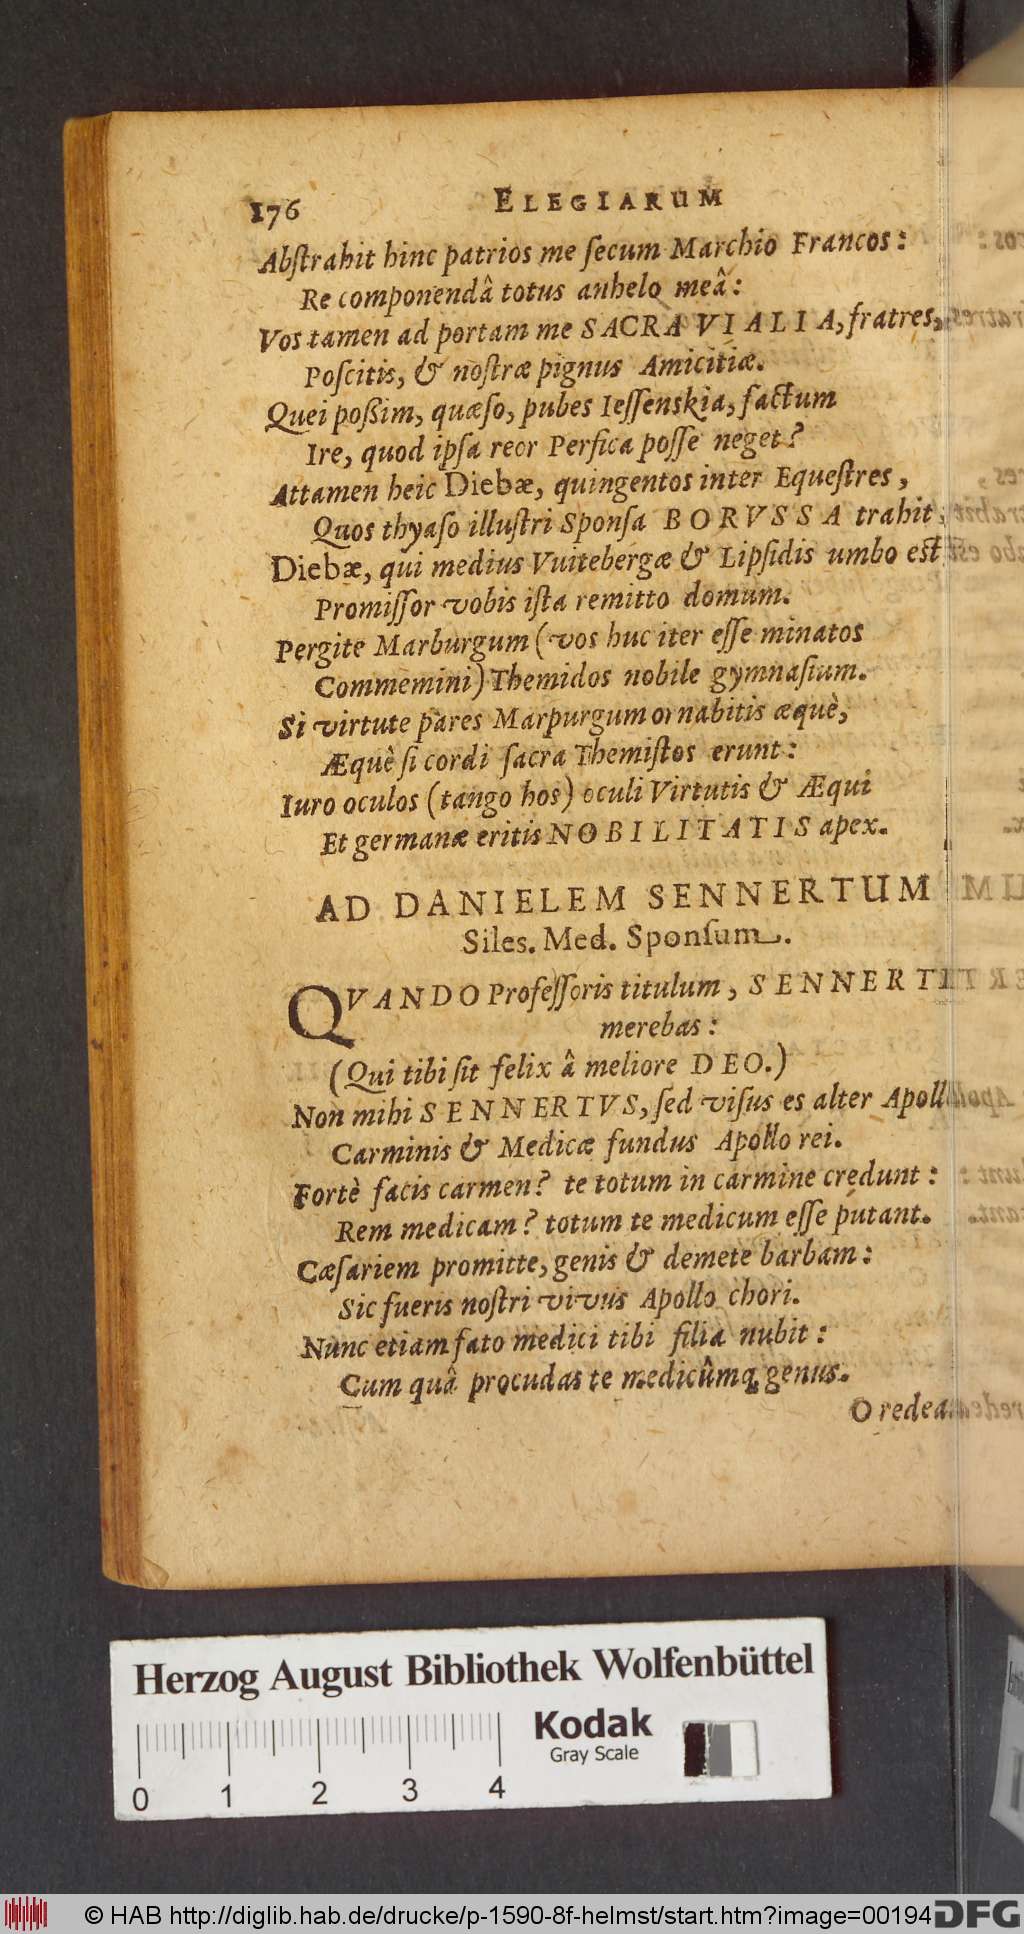 176 ELEGIARUM
Abſtrahit hinc patrios me ſecum Marchio Francos:
Re componendâ totus anhelo meâ:
Vos tamen ad portam me SACRA VIALIA, fratres,
Poſcitis, & noſtræ pignus Amicitiæ.
Quei poßim, quæſo, pubes Ieſſenskia, factum
Ire, quod ipſa reor Perſica poſſe neget?
Attamen heic Diebæ, quingentos inter Equeſtres,
Quos thyaſo illuſtri Sponſa BORVSSA trahit,
Diebæ, qui medius Vuitebergæ & Lipſidis umbo est
Promiſſor vobis iſta remitto domum.
Pergite Marburgum (vos huc iter eſſe minatos
Commemini) Themidos nobile gymnaſium.
Si virtute pares Marpurgum ornabitis æquè,
Æquè ſi cordi ſacra Themiſtos erunt:
Iuro oculos (tango hos) oculi Virtutis & Æqui
Et germanæ eritis NOBILITATIS apex.
AD DANIELEM SENNERTUM
Siles. Med. Sponſum.
QVANDO Profeſſoris titulum, SENNERTE
merebas:
(Qui tibi ſit felix â meliore DEO.)
Non mihi SENNERTVS, ſed viſus es alter Apollo
Carminis & Medicæ fundus Apollo rei.
Fortè facis carmen? te totum in carmine credunt:
Rem medicam? totum te medicum eſſe putant.
Cæſariem promitte, genis & demete barbam:
Sic fueris noſtri vivus Apollo chori.
Nunc etiam fato medici tibi filia nubit:
Cum quâ procudas te medicûmq; genus.
O redea
Herzog August Bibliothek Wolfenbüttel
Kodak
Gray Scale
0 1 2 3 4
© HAB http://diglib.hab.de/drucke/p-1590-8f-helmst/start.htm?image=00194 DFG